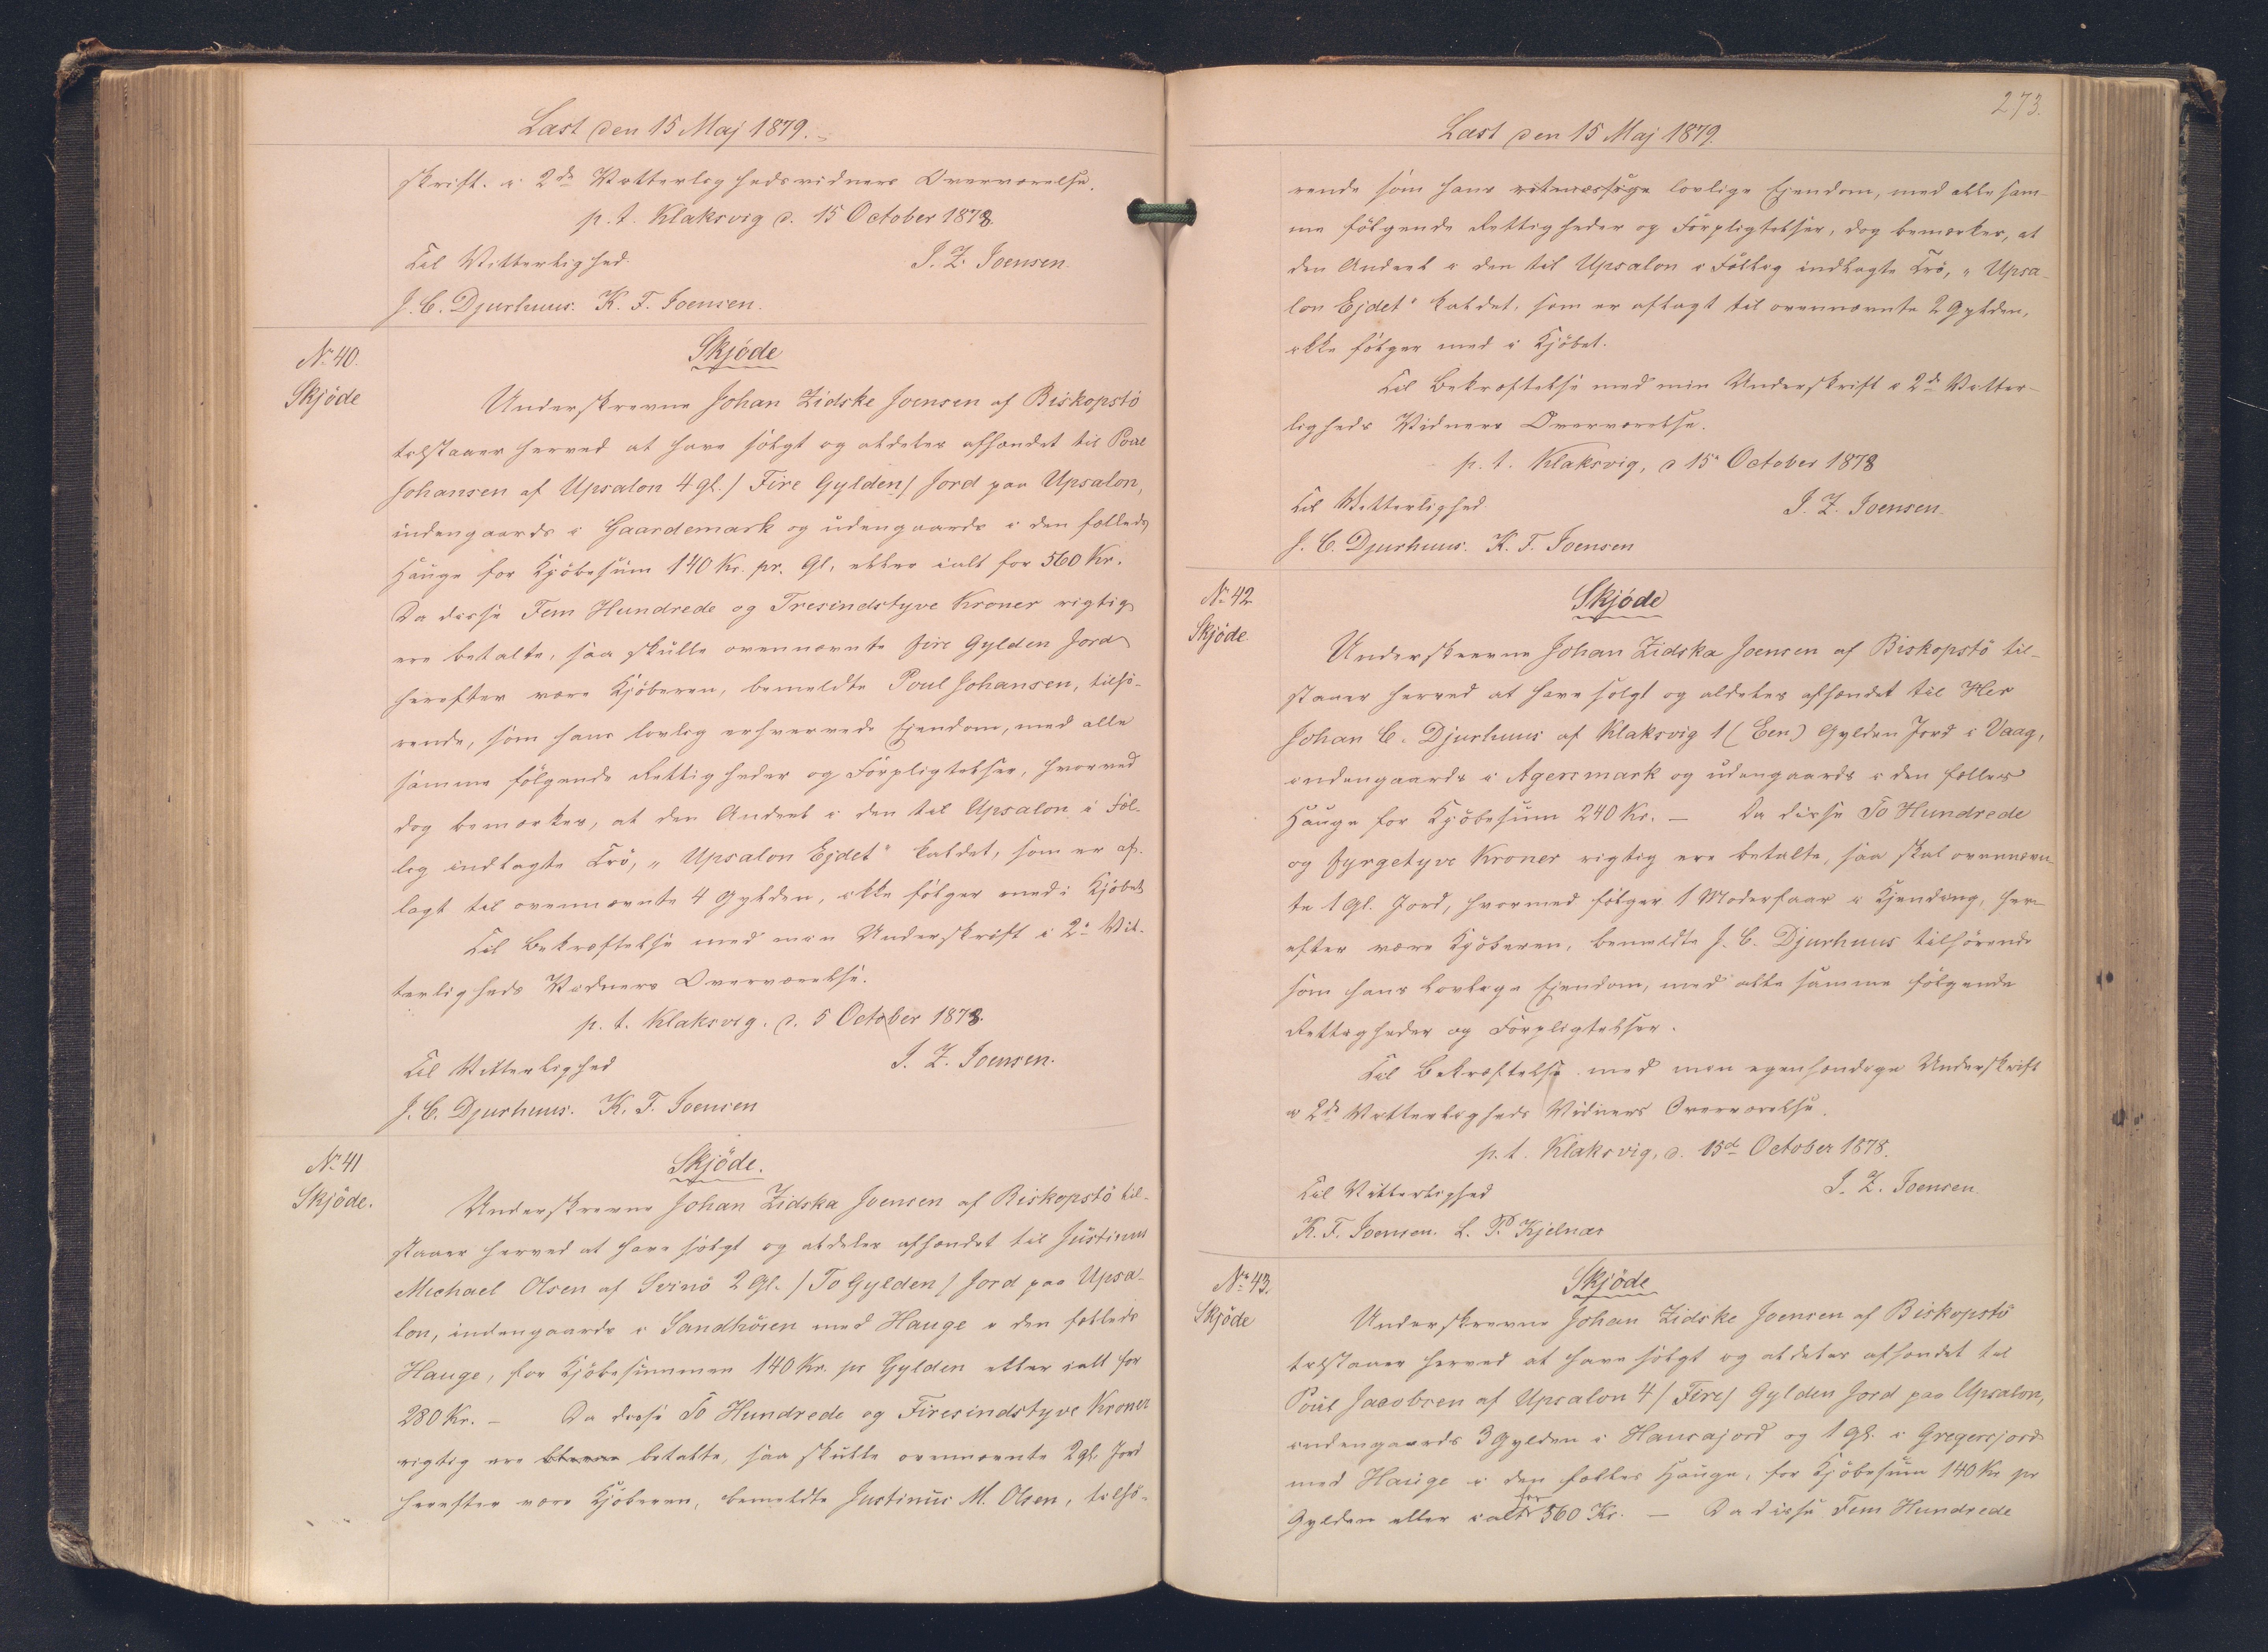 Læst den 15 Maj 1879.
skrift. i 2de Vitterlighedsvidners Overværelse.
p. t. Klaksvig d. 15 October 1878
Til Vitterlighed
J. Z. Joensen.
J. C. Djurhuus. K. F. Joensen.
No 40.
Skjöde
Skjöde
Underskrevne Johan Zidske Joensen af Biskopstö
tilstaaer herved at have solgt og aldeles afhændet til Poul
Johansen af Upsalon 4 gl. / Fire Gylden / Jord paa Upsalon,
indengaards i Gaardemark og udengaards i den fælleds
Hauge for Kjöbesum 140 Kr. pr. Gl. eller ialt for 560 Kr.
Da disse Fem Hundrede og Tresindstyve Kroner rigtig
ere betalte, saa skulle ovennævnte fire Gylden Jord
herefter være Kjöberen, bemeldte Poul Johansen, tilhö-
rende, som hans lovlig erhvervede Ejendom, med alle
samme fölgende Rettigheder og Forpligtelser, hvorved
dog bemærkes, at den Andeel i den til Upsalon i Fæl-
lig indtagte Trö, "Upsalon Ejdet" kaldet, som er af-
lagt til ovennævnte 4 Gylden, ikke fölger med i Kjöbet
Til Bekræftelse med min Underskrift i 2de Vit-
terligheds Vidners Overværelse.
p. t. Klaksvig. d. 5 October 1878.
Til Vitterlighed
J. Z. Joensen.
J. C. Djurhuus. K. F. Joensen
No 41
Skjöde.
Skjöde.
Underskrevne Johan Zidska Joensen af Biskopstö til-
staaer herved at have solgt og aldeles afhændet til Justinus
Michael Olsen af Svinö 2 Gl. / To Gylden / Jord paa Upsa-
lon, indengaards i Sandhúsen med Hauge i den fælleds
Hauge, for Kjöbesummen 140 Kr. pr Gylden eller ialt for
280 Kr. – Da disse To Hundrede og Firesindstyve Kroner
rigtig ere betalte, saa skulle ovennævnte 2 gl. Jord
herefter være Kjöberen, bemeldte Justinus M. Olsen, tilhö-
273.
Læst den 15 Maj 1879.
rende som hans lovlige Ejendom, med alle sam-
me fölgende Rettigheder og Forpligtelser, dog bemærkes, at
den Andeel i den til Upsalon i Fællig indtagte Trö, "Upsa-
lon Ejdet" kaldet, som er aflagt til ovennævnte 2 Gylden,
ikke fölger med i Kjöbet.
Til Bekræftelse med min Underskrift i 2de Vitter-
ligheds Vidners Overværelse.
p. t. Klaksvig, d 15 October 1878
Til Vitterlighed
J. Z. Joensen
J. C. Djurhuus. K. F. Joensen
No 42
Skjöde.
Skjöde
Underskrevne Johan Zidska Joensen af Biskopstö til-
staaer herved at have solgt og aldeles afhændet til Her
Johan C. Djurhuus af Klaksvig 1 (Een) Gylden Jord i Vaag,
indengaards i Agersmark og udengaards i den fælles
Hauge for Kjöbesum 240 Kr. – Da disse To Hundrede
og fyrgetyve Kroner rigtig ere betalte, saa skal ovennævn-
te 1 gl. Jord, hvormed fölger 1 Moderfaar i Kjending, her-
efter være Kjöberen, bemeldte J. C. Djurhuus tilhörende
som hans lovlige Ejendom, med alle samme fölgende
Rettigheder og Forpligtelser.
Til Bekræftelse med min egenhændige Underskrift
i 2de Vitterligheds Vidners Overværelse.
p. t. Klaksvig, d. 15d October 1878.
Til Vitterlighed
J. Z. Joensen
K. F. Joensen. L. P. Kjelnæs
No 43.
Skjöde
Skjöde
Underskrevne Johan Zidske Joensen af Biskopstö
tilstaaer herved at have solgt og aldeles afhændet til
Poul Jacobsen af Upsalon 4 / Fire / Gylden Jord paa Upsalon,
indengaards 3 Gylden i Hansajord og 1 gl. i Gregersjord
med Hauge i den fælles Hauge, for Kjöbesum 140 Kr pr
Gylden eller ialt for 560 Kr. – Da disse Fem Hundrede